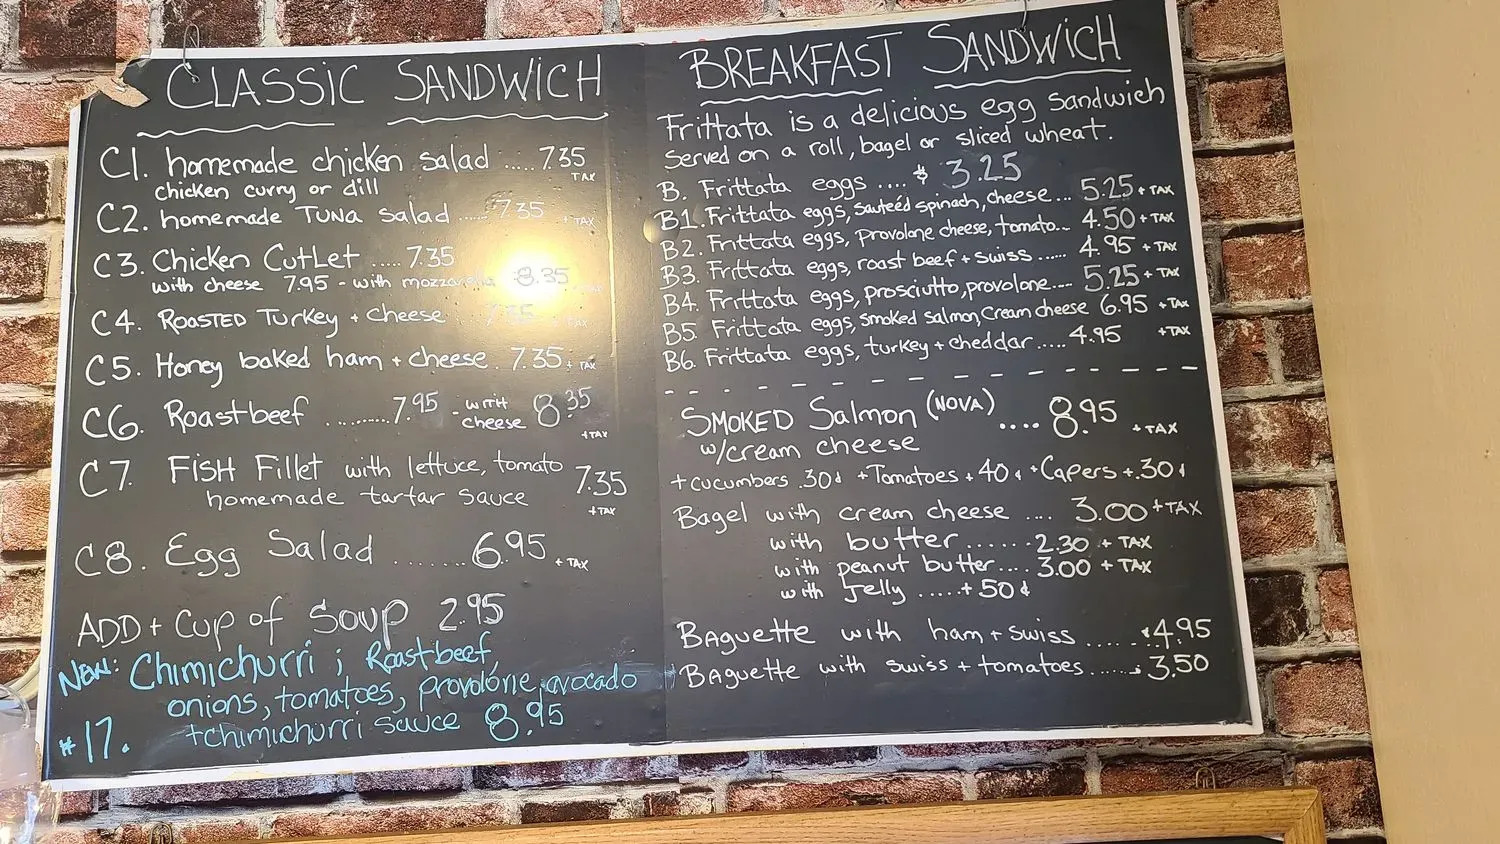 CLASSIC SANDWICH
C1. homemade chicken salad ..... 7.35
TAX
chicken curry or dill
C2. homemade TUNA salad ...... 7.35 + TAX
C3. Chicken CutLet ..... 7.35
with cheese 7.95 - with mozzarella 8.35
TAX
C4. ROASTED Turkey + cheese ... 7.35 + TAX
C5. Honey baked ham + cheese . 7.35 + TAX
C6. Roastbeef .......... 7.95 - WITH cheese 8.35
+TAX
C7. FISH Fillet with lettuce, tomato
homemade tartar sauce 7.35
+TAX
C8. Egg Salad ....... 6.95 + TAX
ADD + Cup of Soup 2.95
NEW: Chimichurri ; Roastbeef,
onions, tomatoes, provolone, avocado
#17. +chimichurri sauce 8.95
BREAKFAST SANDWICH
Frittata is a delicious egg sandwich
Served on a roll, bagel or sliced wheat.
B. Frittata eggs .... $ 3.25
B1. Frittata eggs, sauteéd spinach, cheese... 5.25 + TAX
B2. Frittata eggs, provolone cheese, tomato... 4.50 + TAX
B3. Frittata eggs, roast beef + swiss ...... 4.95 + TAX
B4. Frittata eggs, prosciutto, provolone.... 5.25 + TAX
B5. Frittata eggs, smoked salmon, cream cheese 6.95 + TAX
B6. Frittata eggs, turkey + cheddar ..... 4.95 +TAX
SMOKED Salmon (NOVA) .... 8.95 + TAX
w/cream cheese
+ cucumbers .30¢ +Tomatoes + 40¢ +Capers +.30¢
Bagel with cream cheese .... 3.00 +TAX
with butter ...... 2.30 + TAX
with peanut butter.... 3.00 + TAX
with Jelly ..... + 50¢
Baguette with ham + swiss ...... $4.95
Baguette with swiss + tomatoes ...... 3.50